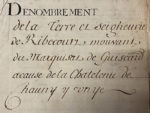 DENOMBREMENT
de la Terre et Seigneurie
de Ribecourt, mouvant
du Marquisat de Guiscard
a cause de la Chatelenie de
chauny y